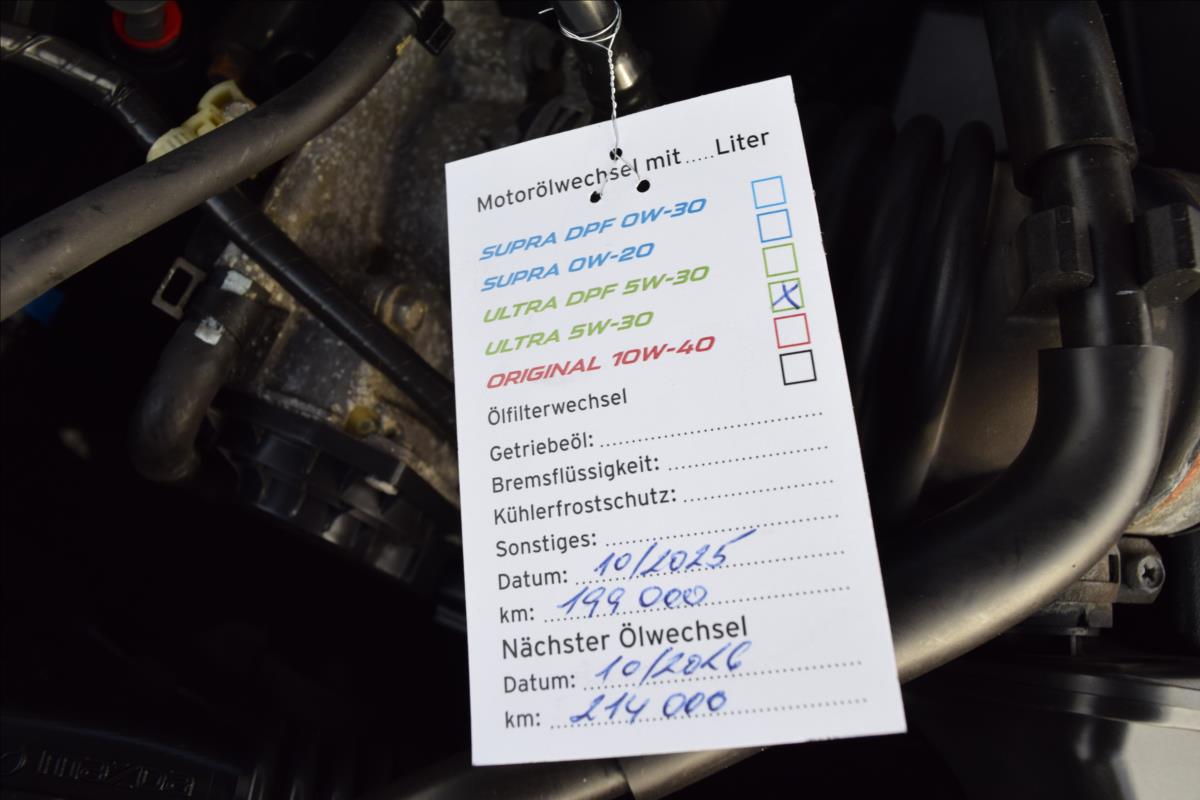 Motorölwechsel mit.....Liter
SUPRA DPF 0W-30
SUPRA 0W-20
ULTRA DPF 5W-30
ULTRA 5W-30 X
ORIGINAL 10W-40
Ölfilterwechsel
Getriebeöl:
Bremsflüssigkeit:
Kühlerfrostschutz:
Sonstiges:
Datum: 10/2025
km: 199 000
Nächster Ölwechsel
Datum: 10/2026
km: 214 000
mazda